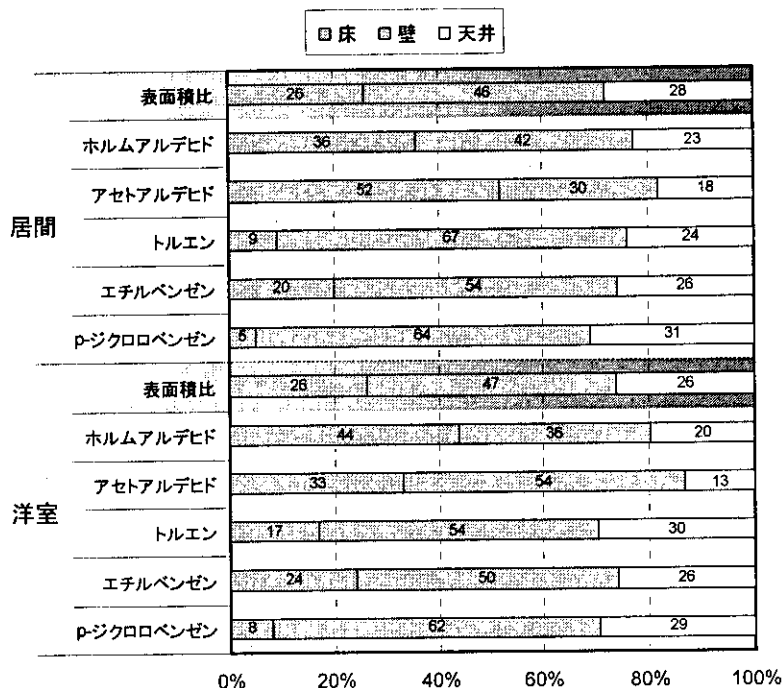 床 壁 天井
表面積比 26 46 28
ホルムアルデヒド 36 42 23
アセトアルデヒド 52 30 18
居間
トルエン 9 67 24
エチルベンゼン 20 54 26
p-ジクロロベンゼン 5 64 31
表面積比 26 47 26
ホルムアルデヒド 44 36 20
アセトアルデヒド 33 54 13
洋室
トルエン 17 54 30
エチルベンゼン 24 50 26
p-ジクロロベンゼン 8 62 29
0% 20% 40% 60% 80% 100%